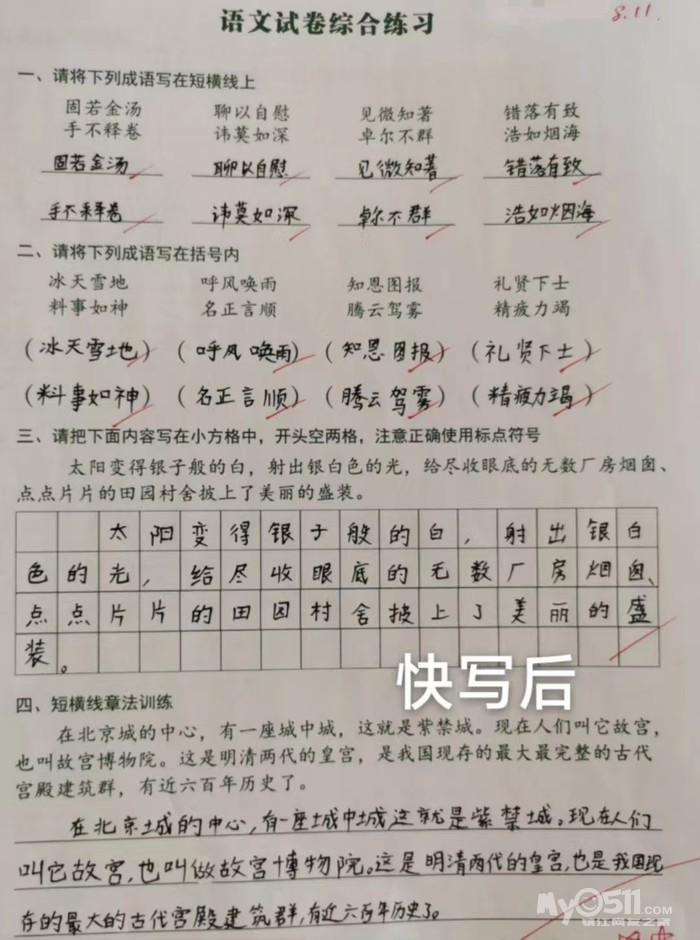 语文试卷综合练习
8.11.
一、请将下列成语写在短横线上
固若金汤 聊以自慰 见微知著 错落有致
手不释卷 讳莫如深 卓尔不群 浩如烟海
固若金汤 聊以自慰 见微知著 错落有致
手不释卷 讳莫如深 卓尔不群 浩如烟海
二、请将下列成语写在括号内
冰天雪地 呼风唤雨 知恩图报 礼贤下士
料事如神 名正言顺 腾云驾雾 精疲力竭
(冰天雪地) (呼风唤雨) (知恩图报) (礼贤下士)
(料事如神) (名正言顺) (腾云驾雾) (精疲力竭)
三、请把下面内容写在小方格中，开头空两格，注意正确使用标点符号
太阳变得银子般的白，射出银白色的光，给尽收眼底的无数厂房烟囱、
点点片片的田园村舍披上了美丽的盛装。
太阳变得银子般的白，射出银白
色的光，给尽收眼底的无数厂房烟囱、
点点片片的田园村舍披上了美丽的盛
装。
快写后
四、短横线章法训练
在北京城的中心，有一座城中城，这就是紫禁城。现在人们叫它故宫，
也叫故宫博物院。这是明清两代的皇宫，是我国现存的最大最完整的古代
宫殿建筑群，有近六百年历史了。
在北京城的中心，有一座城中城，这就是紫禁城。现在人们
叫它故宫，也叫做故宫博物院。这是明清两代的皇宫，也是我国现
存的最大的古代宫殿建筑群，有近六百年历史了。
My0511.com
镇江网友之家